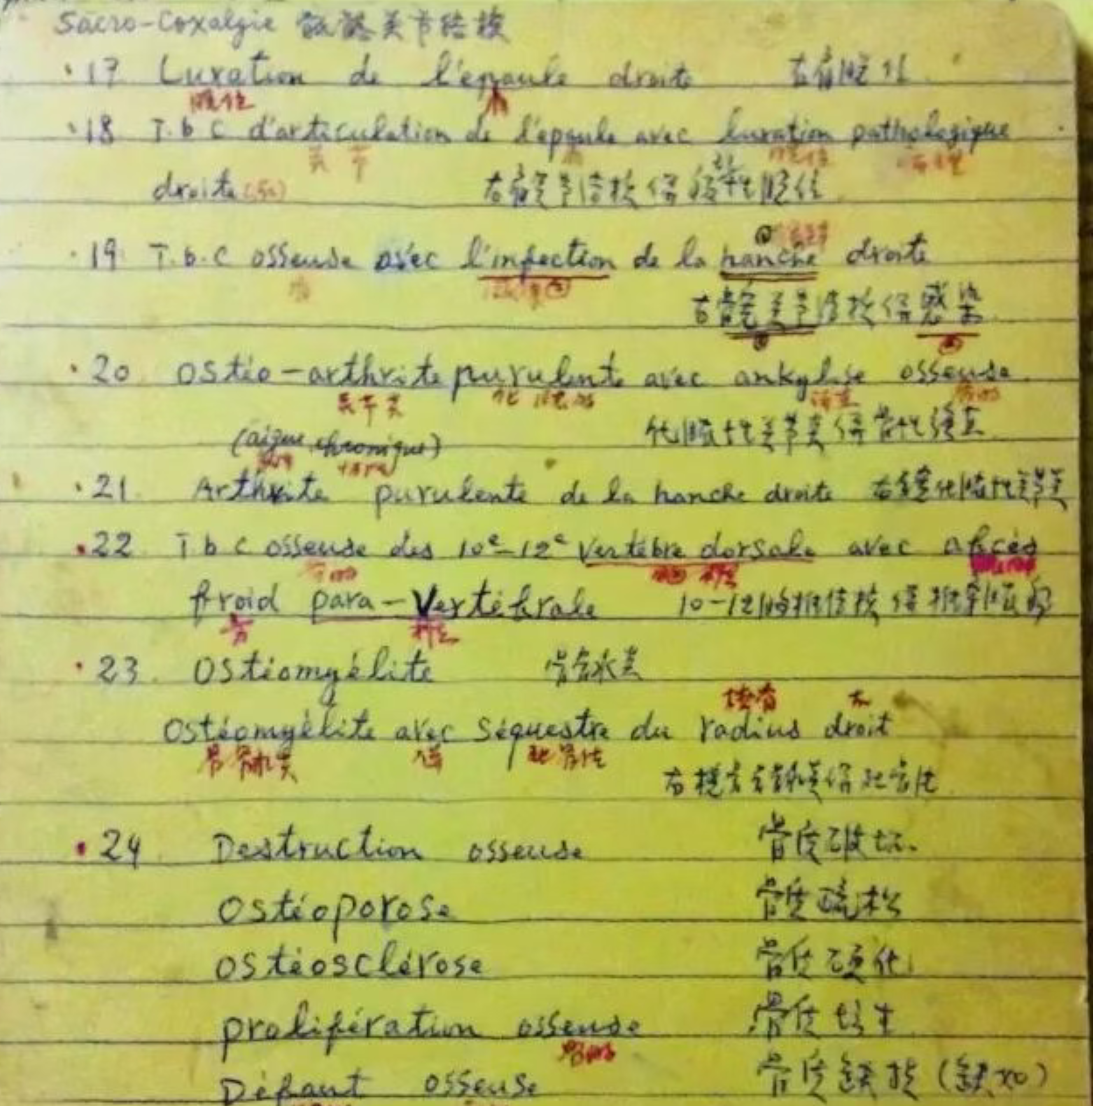 Sacro-Coxalgie 骶髂关节结核
·17 Luxation de l'épaule droite 右肩脱位
脱位 肩
·18 T.b C d'articulation de l'épaule avec luxation pathologique
关节 肩 脱位 病理
droite(右) 右肩关节结核伴病理性脱位
·19 T.b.C osseuse avec l'infection de la hanche droite
骨
右髋关节结核伴感染
·20 Ostéo-arthrite purulente avec ankylise osseuse
关节炎 化脓的 强直 骨的
(aigue, chronique) 化脓性关节炎伴骨性强直
急性 慢性
·21. Arthrite purulente de la hanche droite 右髋化脓性关节炎
·22 T b C osseuse des 10e-12e vertèbre dorsale avec abcès
骨的 胸 椎
froid para-Vertébrale 10-12胸椎结核伴椎旁脓疡
旁 椎
·23. Ostéomyélite 骨髓炎
桡骨 右
Ostéomyélite avec séquestre du radius droit
骨髓炎 伴 死骨性
右桡骨骨髓炎伴死骨性
·24 Destruction osseuse 骨质破坏
Ostéoporose 骨质疏松
Ostéosclérose 骨质硬化
prolifération osseuse 骨质增生
骨的
Défaut osseuse 骨质缺损(缺如)